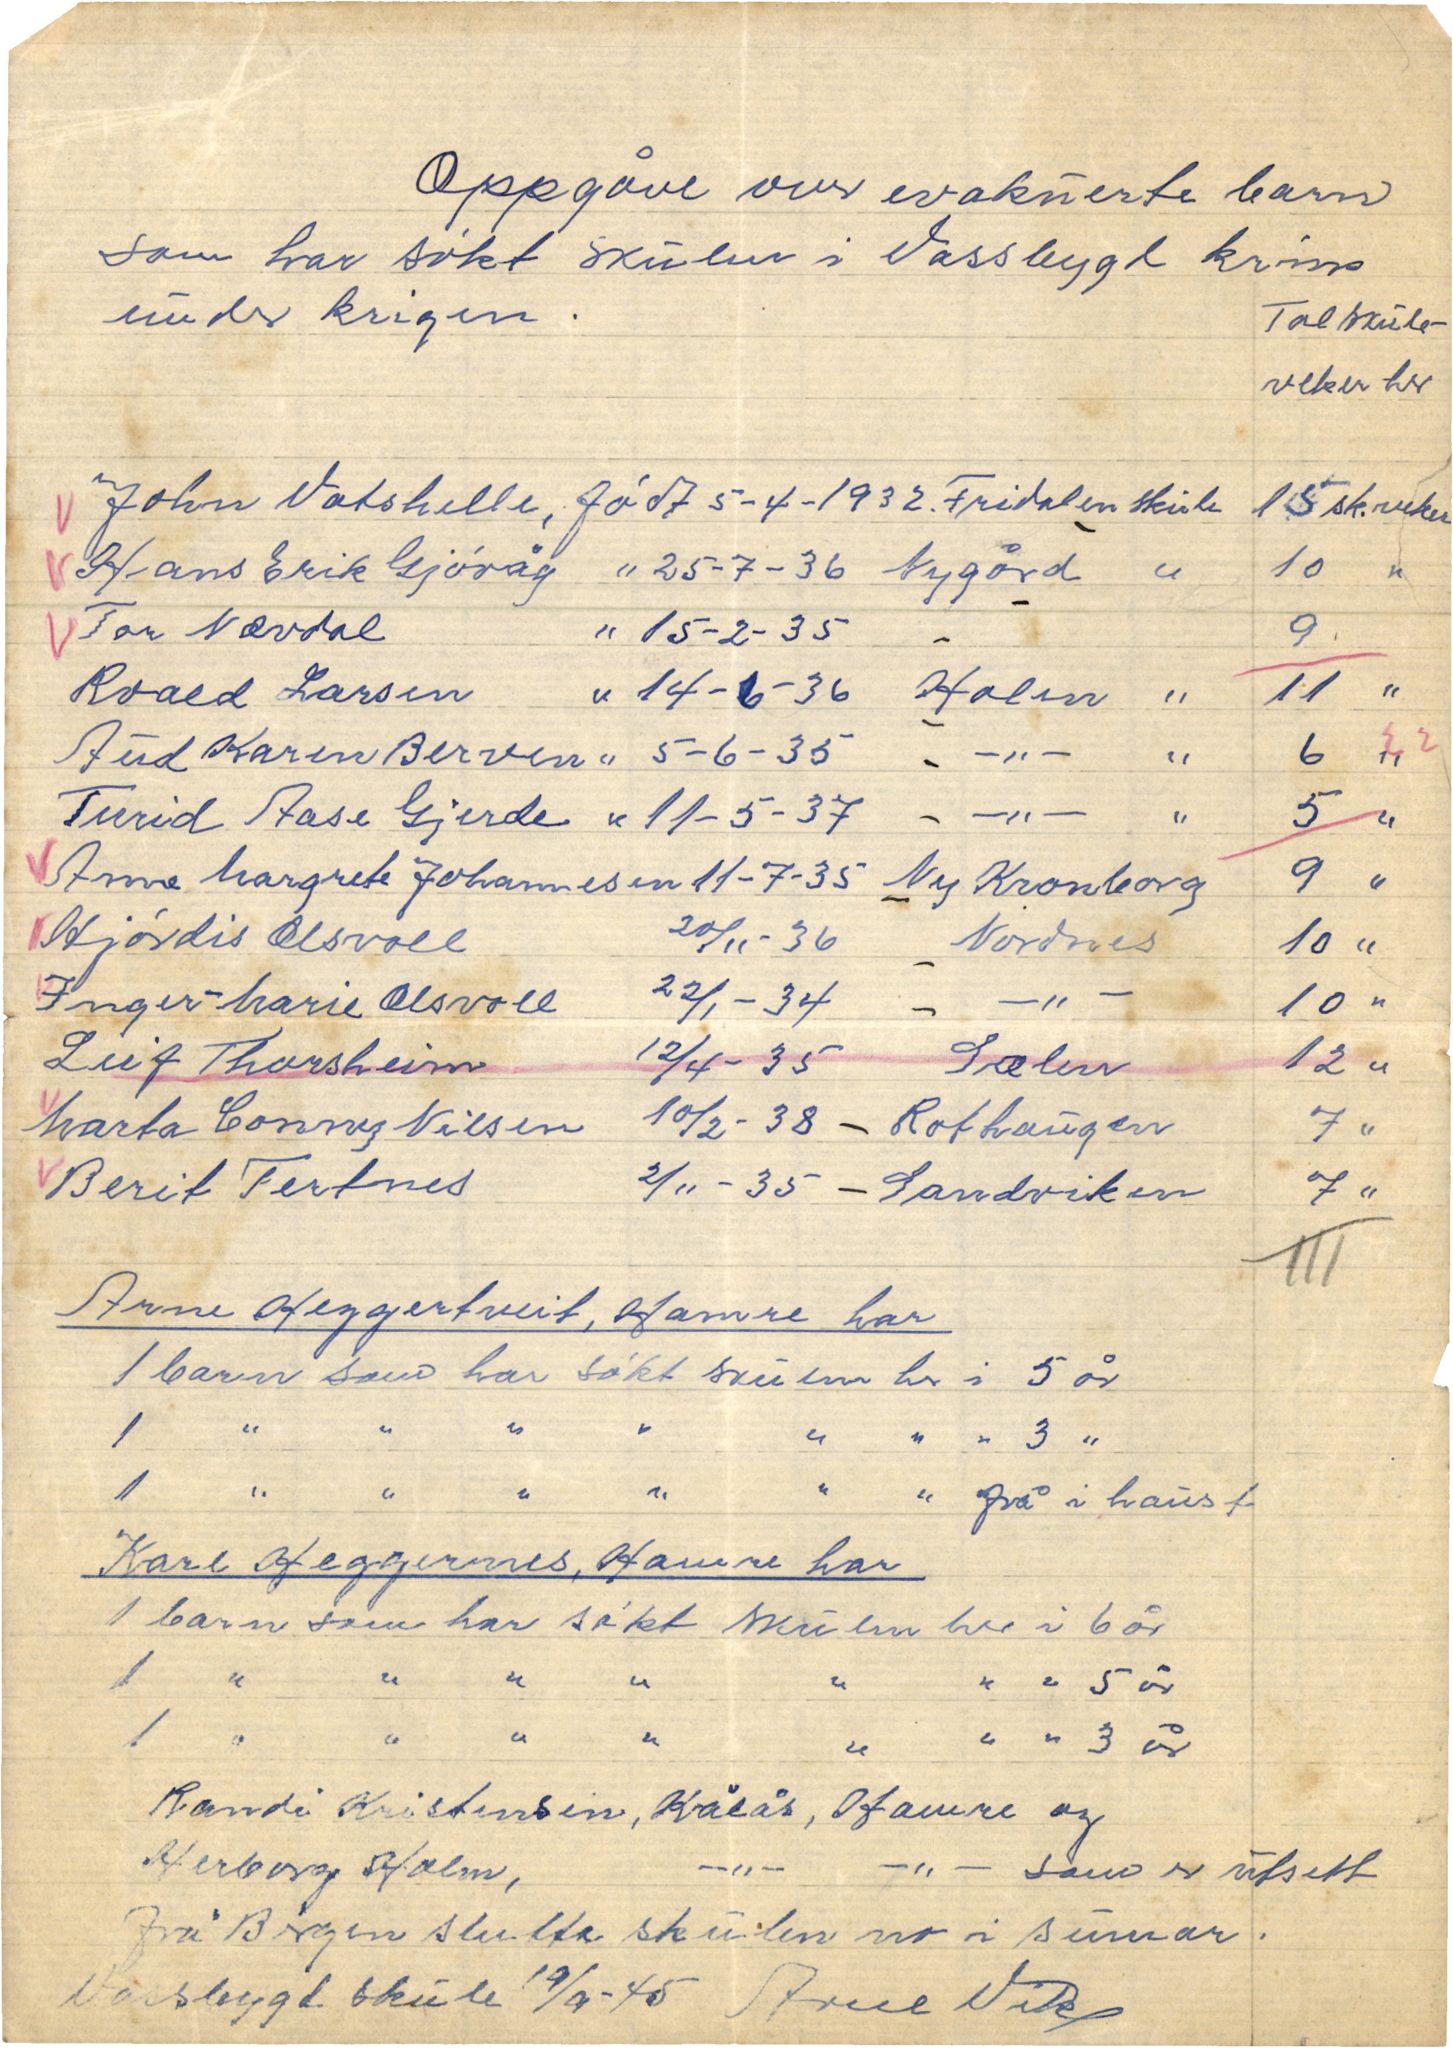 Oppgåve over evakuerte barn
som har søkt skulen i Vassbygd krins
under krigen.
Tal skule-
veker her
John Vatshelle, född 5-4-1932. Fridalen skule 15 sk.veker
Hans Erik Gjøvåg " 25-7-36 Nygård " 10 "
Tor Nævdal " 15-2-35 - 9.
Roald Larsen " 14-6-36 Holen " 11 "
Aud Karen Berven " 5-6-35 - -"- " 6 "
Turid Aase Gjerde " 11-5-37 - -"- " 5 "
Anna Margrete Johannesen 11-7-35 Ny Kronborg 9 "
Hjørdis Olsvoll 20/11-36 - Nordnes 10 "
Inger-Marie Olsvoll 22/1-34 - -"- 10 "
Leif Thorsheim 12/4-35 Sælen 12 "
Marta Conny Nilsen 10/2-38 - Rothaugen 7 "
Berit Tertnes 2/11-35 - Sandviken 7 "
111
Arne Heggertveit, Hamre har
1 barn som har søkt skulen her i 5 år
1 " " " " " " " 3 "
1 " " " " " " frå i haust
Karl Heggernes, Hamre har
1 barn som har søkt skulen her i 6 år
1 " " " " " " " 5 år
1 " " " " " " " 3 år
Randi Kristensen, Kålås, Hamre og
Herborg Holm, -"- -"- som er utsett
frå Bergen slutta skulen no i sumar.
Vassbygd skule 19/9-45 Arne Vik